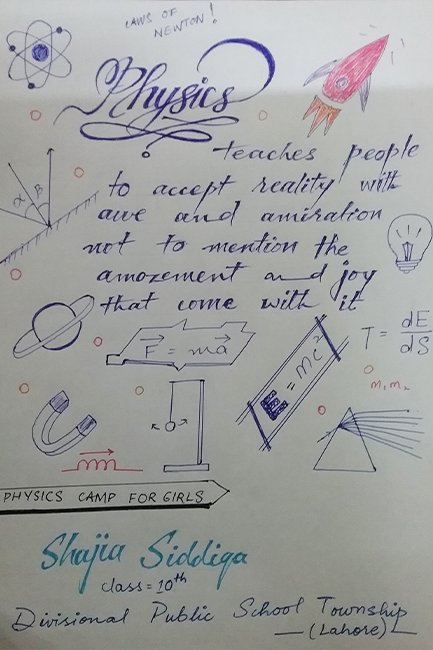 LAWS OF
NEWTON!
Physics
teaches people
to accept reality with
awe and amiration
not to mention the
amozement and joy
that come with it
α β
F = ma
E = mc²
T = dE/dS
m₁m₂
PHYSICS CAMP FOR GIRLS
Shajia Siddiqa
class = 10th
Divisional Public School Township
(Lahore)